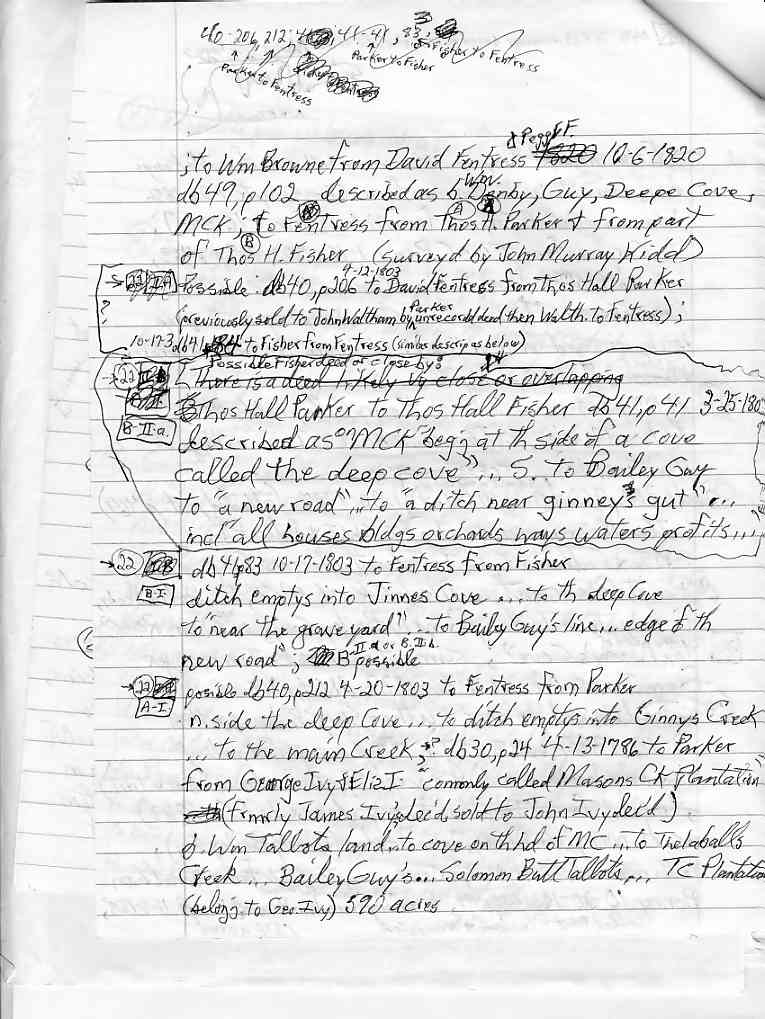 40-206, 212; 41-41, 83
Parker to Fentress
Parker to Fisher
Fisher to Fentress
& Peggy F.
; to Wm Browne from David Fentress 1820 10-6-1820
db49, p102 described as b. Wm. Denby, Guy, Deepe Cove,
MCK; to Fentress from Thos H. Parker & from part
A A
of Thos H. Fisher (surveyd by John Murray Kidd)
B
4-12-1803
→ 22 II A Possible: db40, p206 to David Fentress from Thos Hall Parker
?
(previously sold to John Waltham by Parker unrecorded deed then Walth. to Fentress);
10-17-3 db41 84 to Fisher from Fentress (similar descrip as below)
Possible Fisher deed or close by:
→ 22 There is a deed likely v. close or overlapping
Thos Hall Parker to Thos Hall Fisher db41, p41 3-25-180
B-II-a.
described as "MCK" beg. at th side of a cove
called the deep cove" ... S. to Bailey Guy
to "a new road" ... to "a ditch near ginney's gut" ...
incl "all houses bldgs orchards ways waters profits ...
→ 22 db41p83 10-17-1803 to Fentress from Fisher
B-I ditch emptys into Jinnes Cove ... to th deep Cove
to "near the graveyard" ... to Bailey Guy's line ... edge of th
new road"; B II a or B. II b. possible
→ 22 posible db40, p212 4-20-1803 to Fentress from Parker
A-I n. side the deep Cove ... to ditch emptys into Ginnys Creek
... to the main Creek; → ? db30, p24 4-13-1786 to Parker
from George Ivy & Eliz I. "comonly called Masons Ck Plantation"
(frmrly James Ivy dec'd, sold to John Ivy dec'd)
b. Wm Talbots land ... to cove on th hd of MC ... to Thelaballs
Creek ... Bailey Guy's ... Solomon Butt Talbots ... TC Plantatio
(belong to Geo. Ivy) 590 acres